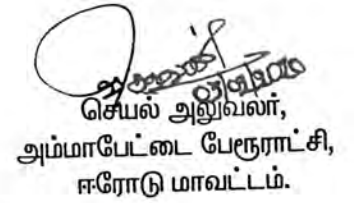 செயல் அலுவலர்,
அம்மாபேட்டை பேரூராட்சி,
ஈரோடு மாவட்டம்.